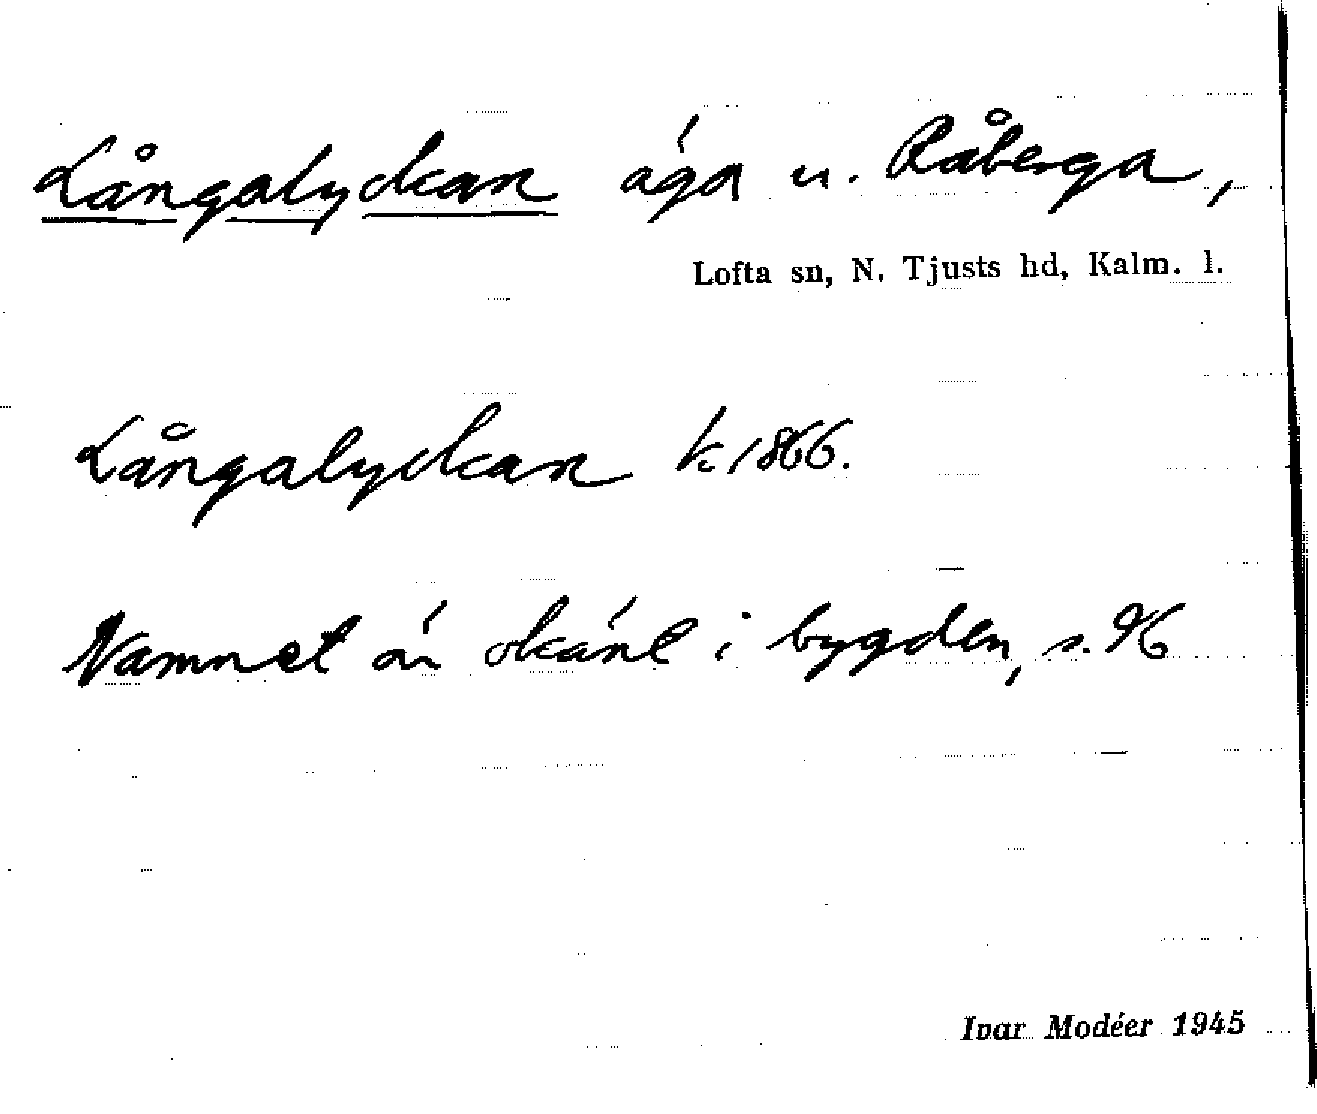 Långalyckan äga u. Råberga,
Lofta sn, N. Tjusts hd, Kalm. l.
Långalyckan k 1866.
Namnet är okänt i bygden, s. 96
Ivar Modéer 1945